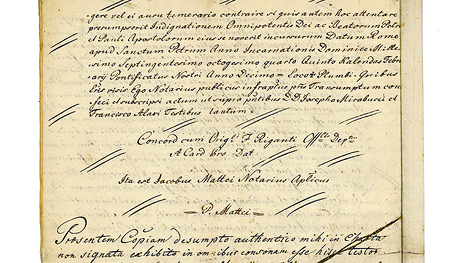 gere vel ei ausu temerario contraire si quis autem hoc attentare
presumpserit Indignationem Omnipotentis Dei ac Beatorum Petri
et Pauli Apostolorum eius se noverit incursurum Datum Romæ
apud Sanctum Petrum Anno Incarnationis Dominice Mille-
simo Septingentesimo octogesimo quarto Quinto Kalendas Febr
arÿ Pontificatus Nostri Anno Decimo = Loco + Plumbi = Quibus
Ego Notarius publicus infraptus pns Transumptum con-
feci et suscripsi actum ut supra pntibus DD Josepho Mirabucci et
Francisco Alari Testibus tantum =
Concord cum Orig:
Riganti Offlis Dep
A Card Pro Dat
Ita est Jacobus Mattei Notarius Aplicus
P. Mattei
Presentem Copiam desumpto authentico mihi in Charta
non signata exhibito in omibus consonam esse hisce testor